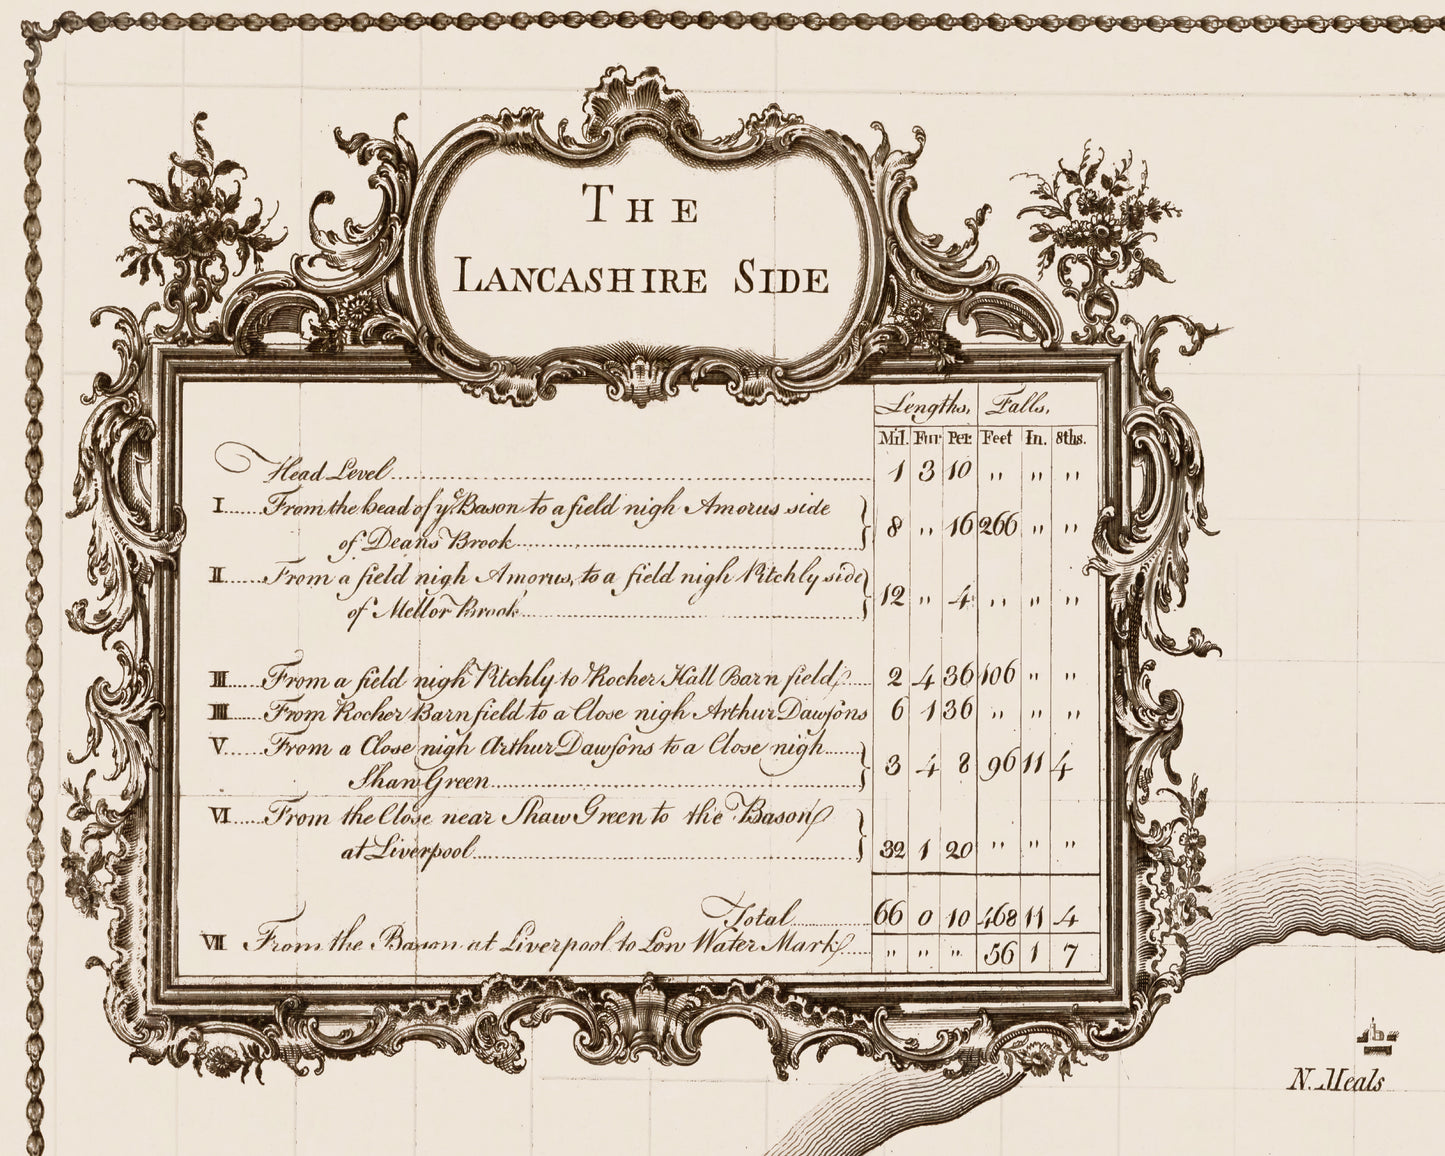 THE
LANCASHIRE SIDE
Lengths, Falls,
Mil. Fur Per. Feet In. 8ths.
Head Level 1 3 10 " " "
I From the head of yᵉ Bason to a field nigh Amorus side
of Deans Brook 8 " 16 266 " "
II From a field nigh Amorus, to a field nigh Ritchly side
of Mellor Brook 12 " 4 " " "
III From a field nigh Ritchly to Rocher Hall Barn field 2 4 36 106 " "
IIII From Rocher Barn field to a Close nigh Arthur Dawſons 6 1 36 " " "
V From a Close nigh Arthur Dawſons to a Close nigh
Shaw Green 3 4 8 96 11 4
VI From the Close near Shaw Green to the Bason
at Liverpool 32 1 20 " " "
Total 66 0 10 468 11 4
VII From the Bason at Liverpool to Low Water Mark " " " 56 1 7
N. Meals